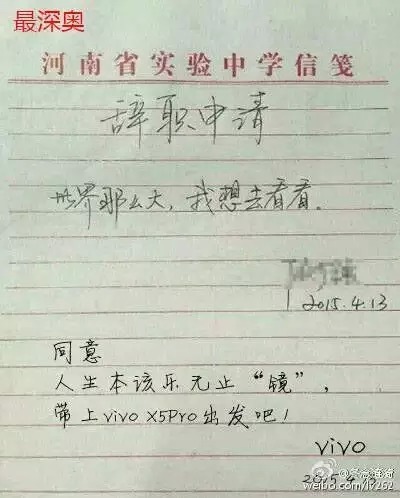 最深奥
河南省实验中学信笺
辞职申请
世界那么大，我想去看看。
2015.4.13
同意
人生本该乐无止“镜”，
带上vivo X5Pro出发吧！
vivo
weibo.com/lv262